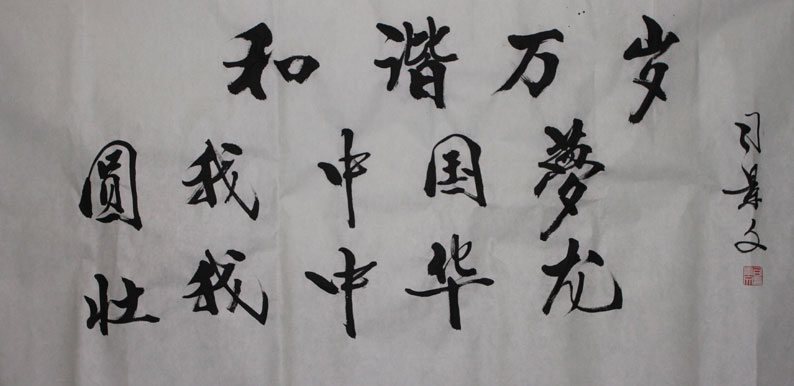 和谐万岁
圆我中国梦
壮我中华龙
司景文